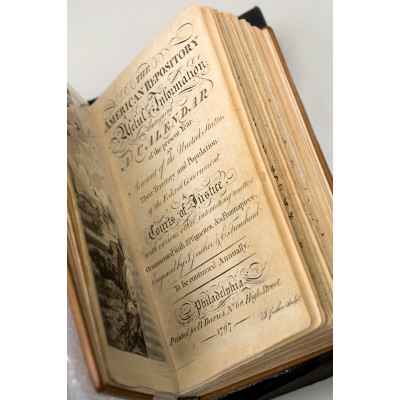 THE
AMERICAN REPOSITORY
of
Useful Information.
Containing
A CALENDAR
of the present Year.
Account of the United States,
Their Territory and Population
of the Federal Government
&
Courts of Justice,
with various other interesting matters.
Ornamented with 12 Vignettes, & a Frontispiece,
Engraved by J. Smither &
To be continued Annually.
Philadelphia,
Printed for B. Davies, No. 68 High Street.
1797
J. Smither Sculpt